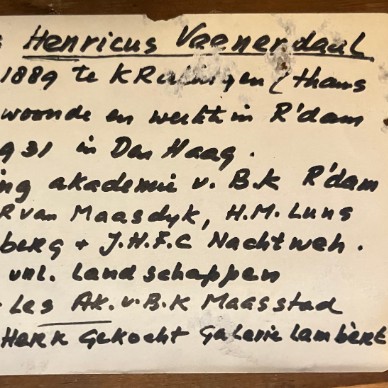 s Henricus Vaenerdaal
1889 te KRalingen (thans
woonde en werkt in R'dam
931 in Den Haag.
ing akademie v. B.K R'dam
R van Maasdyk, H.M. Luns
berg + J.H.F.C Nachtweh.
vnl. Landschappen
Les AK. v. B.K Maasstad
Gekocht Galerie Lambèrt